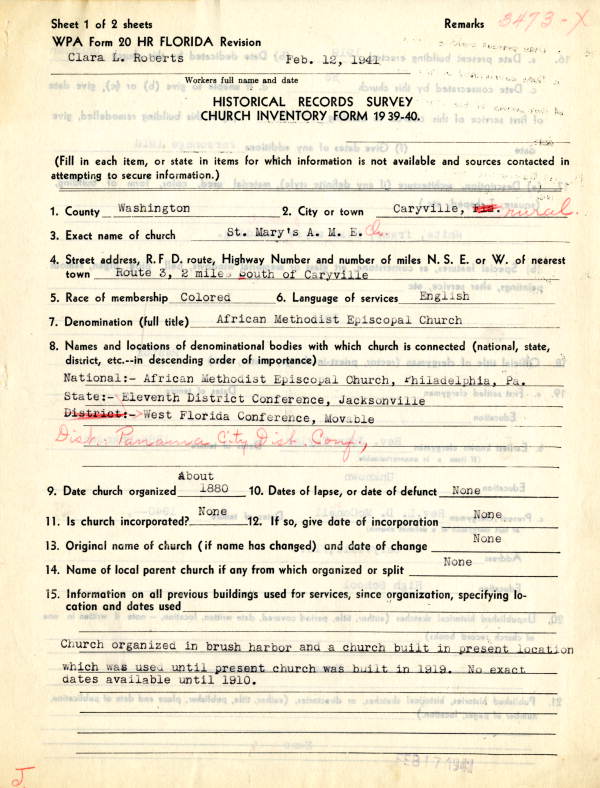 Sheet 1 of 2 sheets Remarks 3473-X
WPA Form 20 HR FLORIDA Revision
Clara L. Roberts Feb. 12, 1941
Workers full name and date
HISTORICAL RECORDS SURVEY
CHURCH INVENTORY FORM 1939-40.
(Fill in each item, or state in items for which information is not available and sources contacted in
attempting to secure information.)
1. County Washington 2. City or town Caryville, rural
3. Exact name of church St. Mary's A. M. E. Ch.
4. Street address, R. F D. route, Highway Number and number of miles N. S. E. or W. of nearest
town Route 3, 2 miles South of Caryville
5. Race of membership Colored 6. Language of services English
7. Denomination (full title) African Methodist Episcopal Church
8. Names and locations of denominational bodies with which church is connected (national, state,
district, etc.--in descending order of importance)
National:- African Methodist Episcopal Church, Philadelphia, Pa.
State:- Eleventh District Conference, Jacksonville
District:- West Florida Conference, Movable
Dist. Panama City Dist. Conf.,
About
9. Date church organized 1880 10. Dates of lapse, or date of defunct None
11. Is church incorporated? None 12. If so, give date of incorporation None
13. Original name of church (if name has changed) and date of change None
14. Name of local parent church if any from which organized or split None
15. Information on all previous buildings used for services, since organization, specifying lo-
cation and dates used
Church organized in brush harbor and a church built in present location
which was used until present church was built in 1919. No exact
dates available until 1910.
J